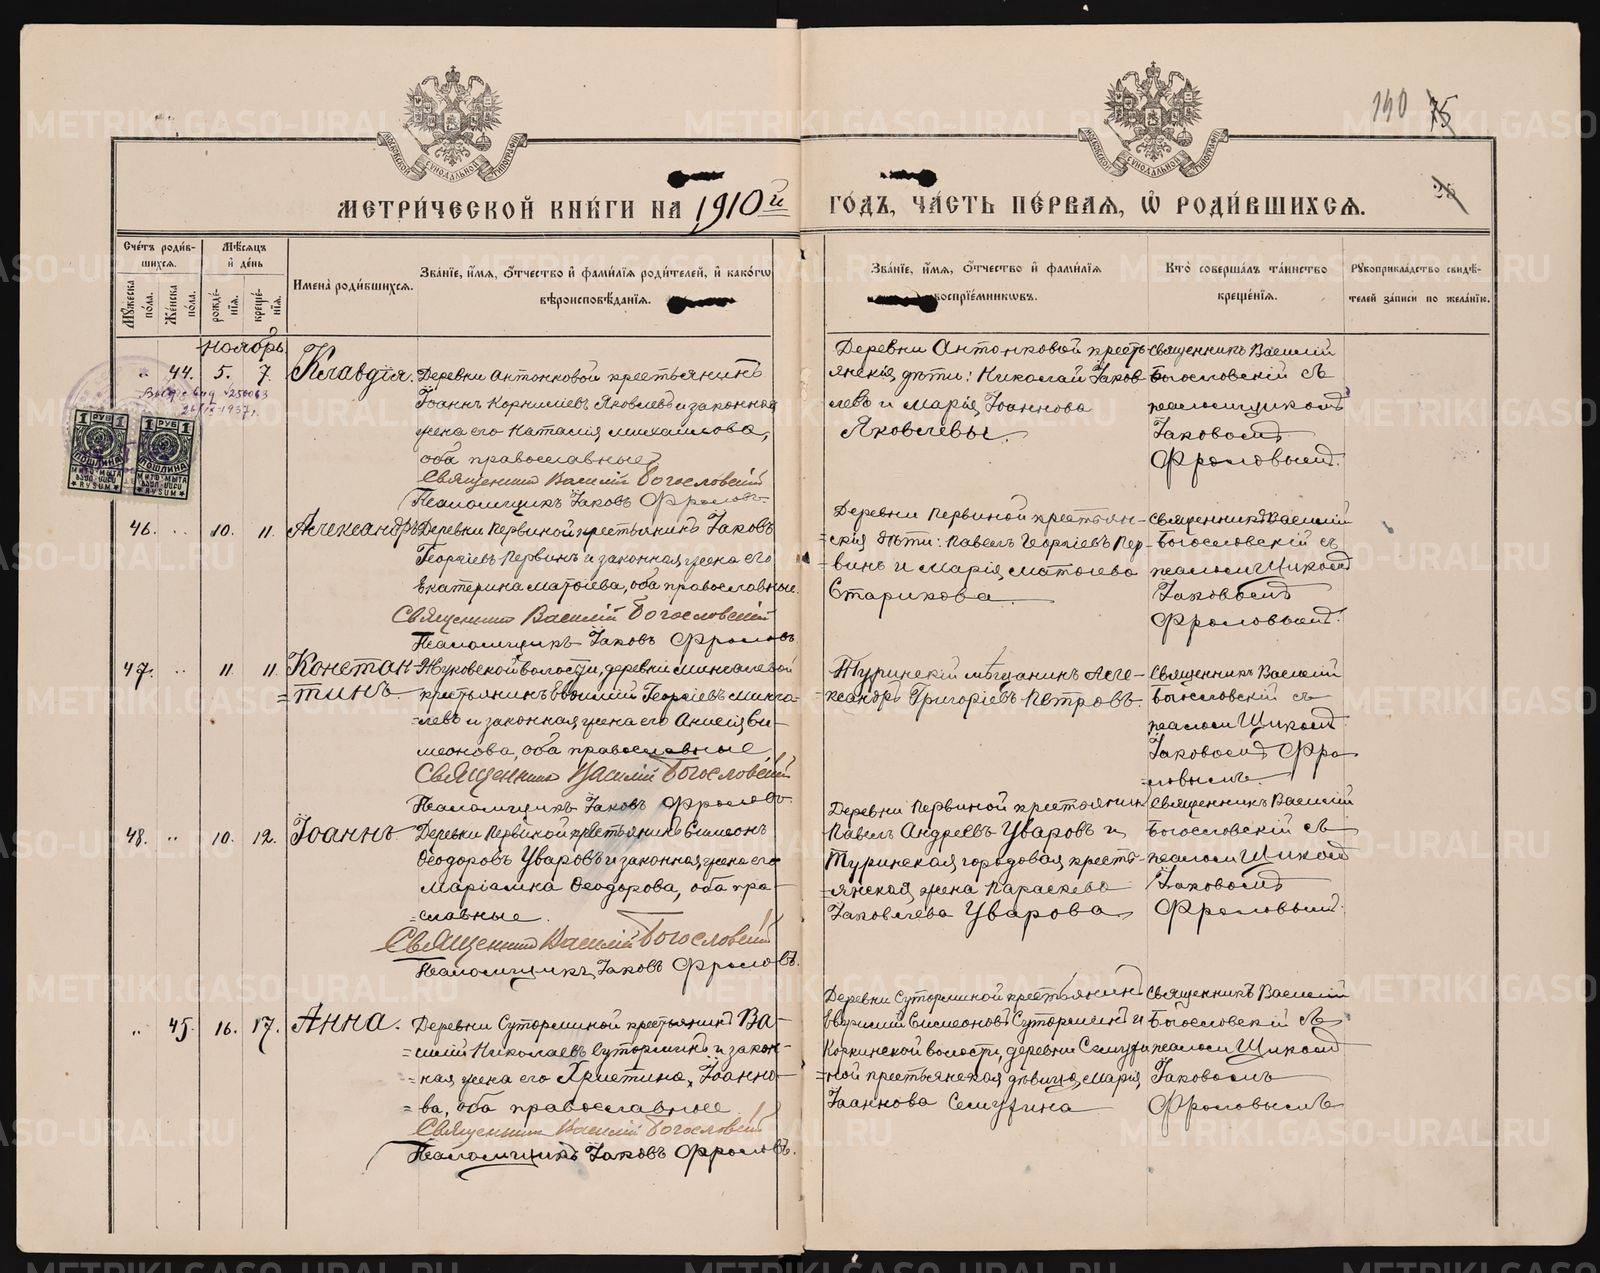 140 75
МЕТРИЧЕСКОЙ КНИГИ НА 1910й ГОДЪ, ЧАСТЬ ПЕРВАЯ, Ѡ РОДИВШИХСЯ.
Счетъ родившихся.
Мужеска пола.
Женска пола.
Мѣсяцъ и день
рожденія.
крещенія.
Имена родившихся.
Званіе, имя, отчество и фамилія родителей, и какого
вѣроисповѣданія.
Званіе, имя, отчество и фамилія
воспріемниковъ.
Кто совершалъ таинство
крещенія.
Рукоприкладство свидѣ-
телей записи по желанію.
Ноябрь
44. 5. 7. Клавдія.
Деревни Антонковой крестьянинъ
Іоаннъ Корниліевъ Яковлевъ и законная
жена его Наталія Михаилова,
оба православные
Священникъ Василій Богословскій
Псаломщикъ Іаковъ Фроловъ
Деревни Антонковой кресть-
янскія дѣти: Николай Іаков-
левъ и Марія Іоаннова
Яковлевы.
Священникъ Василій
Богословскій съ
псаломщикомъ
Іаковомъ
Фроловымъ.
1 РУБ 1
ПОШЛИНА
МИТО-МЫТА
RYSUM
1 РУБ 1
ПОШЛИНА
МИТО-МЫТА
RYSUM
46. 10. 11. Александръ
Деревни Первиной крестьянинъ Іаковъ
Георгіевъ Первинъ и законная жена его
Екатерина Матѳіева, оба православные.
Священникъ Василій Богословскій
Псаломщикъ Іаковъ Фроловъ
Деревни Первиной крестьян-
скія дѣти: Павелъ Георгіевъ Пер-
винъ и Марія Матѳіева
Старикова.
Священникъ Василій
Богословскій съ
псаломщикомъ
Іаковомъ
Фроловымъ.
47. 11 11 Констан-
тинъ
Жуковской волости, деревни Мингалевой
крестьянинъ Василій Георгіевъ Минга-
левъ и законная жена его Анисія Си-
меонова, оба православные
Священникъ Василій Богословскій
Псаломщикъ Іаковъ Фроловъ
Туринскій мѣщанинъ Але-
ксандръ Григоріевъ Петровъ.
Священникъ Василій
Богословскій съ
псаломщикомъ
Іаковомъ Фро-
ловымъ
48. 10. 12. Іоаннъ
Деревни Первиной крестьянинъ Симеонъ
Ѳеодоровъ Уваровъ и законная жена его
Маріамна Ѳеодорова, оба пра-
славные.
Священникъ Василій Богословскій
Псаломщикъ Іаковъ Фроловъ.
Деревни Первиной крестьянинъ
Павелъ Андреевъ Уваровъ и
Туринская городовая кресть-
янская жена Параскева
Іаковлева Уварова
Священникъ Василій
Богословскій съ
псаломщикомъ
Іаковомъ
Фроловымъ.
45. 16. 17. Анна.
Деревни Суторминой крестьянинъ Ва-
силій Николаевъ Суторминъ и закон-
ная жена его Христина Іоанно-
ва, оба православные.
Священникъ Василій Богословскій
Псаломщикъ Іаковъ Фроловъ.
Деревни Суторминой крестьянинъ
Симеоновъ Суторминъ и
Коркинской волости, деревни
ной крестьянская дѣвица Марія
Іоаннова
Священникъ Василій
Богословскій съ
псаломщикомъ
Іаковомъ
Фроловымъ
METRIKI.GASO-URAL.RU